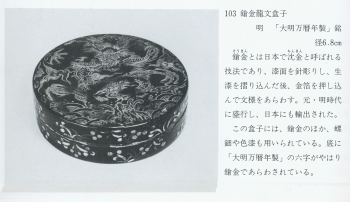 103 鎗金龍文盒子
明　「大明万暦年製」銘
径6.8cm
鎗金とは日本で沈金と呼ばれる
そうきん
ちんきん
技法であり、漆面を針彫りし、生
漆を摺り込んだ後、金箔を押し込
んで文様をあらわす。元・明時代
に盛行し、日本にも輸出された。
この盒子には、鎗金のほか、螺
鈿や色漆も用いられている。底に
「大明万暦年製」の六字がやはり
鎗金であらわされている。